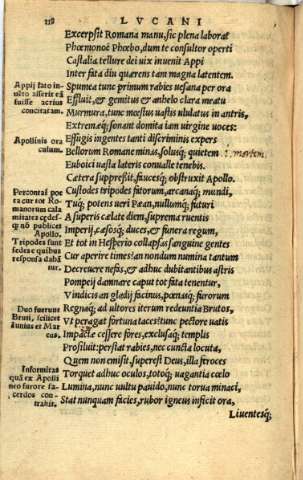 118 LVCANI
Excerpsit Romana manu, sic plena laborat
Phœmonoë Phœbo, dum te consultor operti
Castalia tellure dei uix inuenit Appi
Inter fata diu quærens tam magna latentem.
Appij fato in
uêto asserit eã
fuisse acrius
concitatam.
Spumea tunc primum rabies uesana per ora
Effluit, & gemitus & anhelo clara meatu
Murmura, tunc mœstus uastis ululatus in antris,
Extremæq; sonant domita iam uirgine uoces:
Apollinis ora
culum.
Effugis ingentes tanti discriminis expers
Bellorum Romane minas, solusq; quietem
i. mortem
Euboici uasta lateris conualle tenebis.
Cætera suppressit, faucesq; obstruxit Apollo.
Percontat' poe
ta cur tot Ro-
manorum cala
mitates cædesq́
q̃ nõ publicet
Apollo.
Tripodes sunt
sedes e quibus
responsa dabã
tur.
Custodes tripodes fatorum, arcanaq; mundi,
Tuq; potens ueri Pæan, nullumq; futuri
A superis cælate diem, suprema ruentis
Imperij, cæsosq; duces, & funera regum,
Et tot in Hesperio collapsas sanguine gentes
Cur aperire times? an nondum numina tantum
Decreuere nefas, & adhuc dubitantibus astris
Pompeij damnare caput tot fata tenentur,
Vindicis an gladij facinus, pœnasq; furorum
Duo fuerunt
Bruti, scilicet
Iunius et Mar
cus.
Regnaq; ad ultores iterum redeuntia Brutos,
Vt peragat fortuna taces? tunc pectore uatis
Impacta cessere fores, exclusaq; templis
Prosiluit: perstat rabies, nec cuncta locuta,
Quem non emisit, superest Deus, illa feroces
Informitas
quã ex Apolli
nio furore sa-
cerdos con-
trahit.
Torquet adhuc oculos, totoq; uagantia cœlo
Lumina, nunc uultu pauido, nunc torua minaci,
Stat nunquam facies, rubor igneus inficit ora,
Liuentesq;